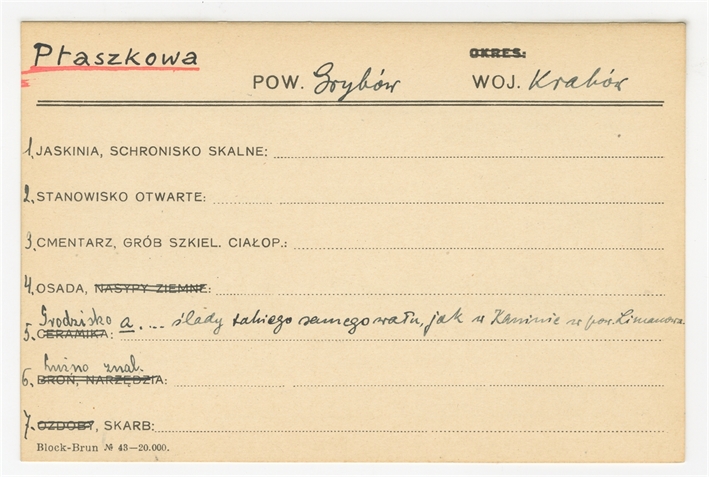 Ptaszkowa
OKRES:
POW. Grybów WOJ. Kraków
1. JASKINIA, SCHRONISKO SKALNE:
2. STANOWISKO OTWARTE:
3. CMENTARZ, GRÓB SZKIEL. CIAŁOP.:
4. OSADA, NASYPY ZIEMNE:
Grodzisko a .... ślady takiego samego wału, jak w Kaninie w pow. Limanowa
5. CERAMIKA:
Luźno znal.
6. BROŃ, NARZĘDZIA:
7. OZDOBY, SKARB:
Block-Brun № 43—20.000.